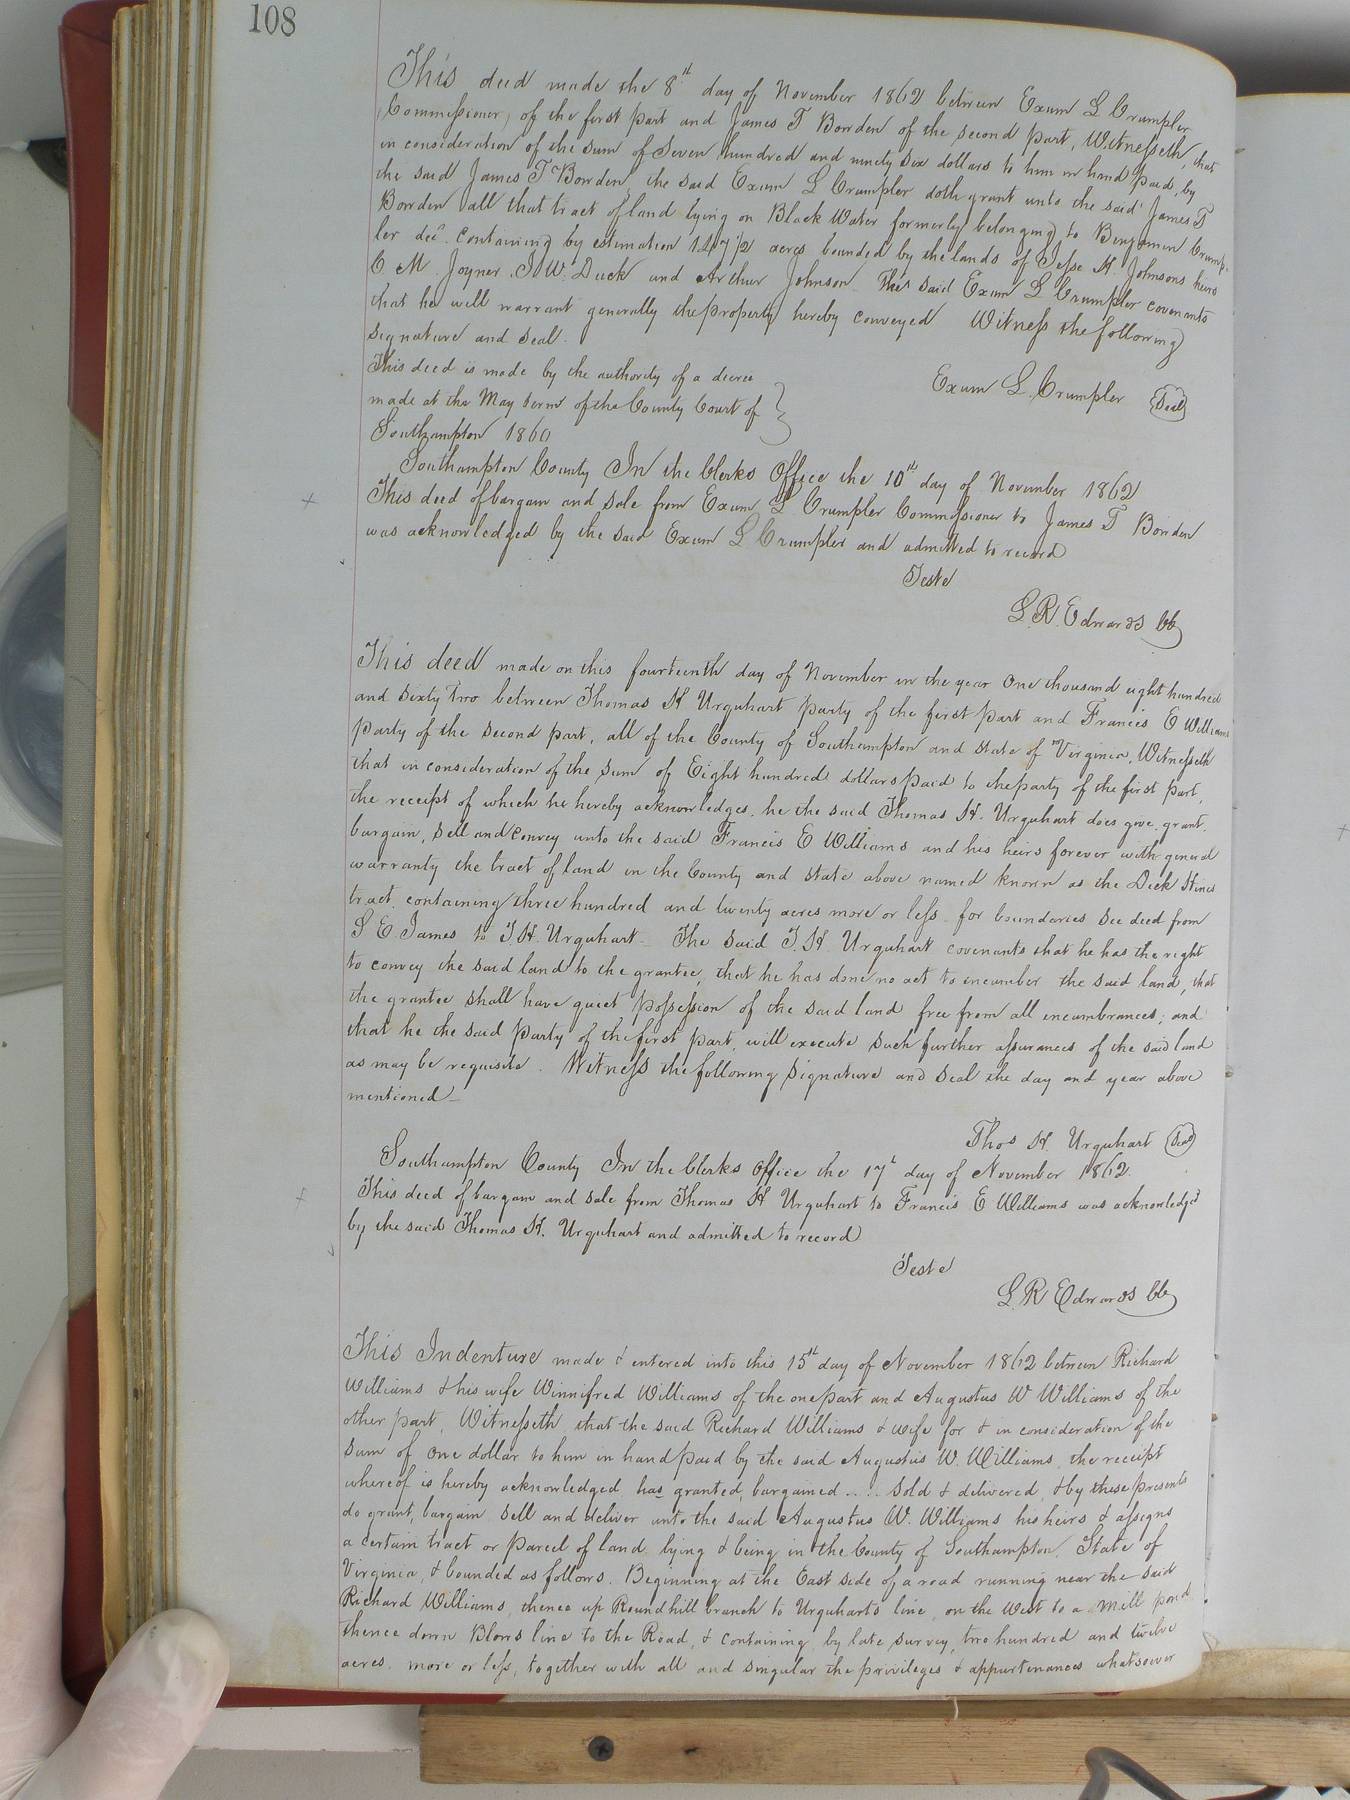 108
This deed made the 8th day of November 1862 between Exum L Crumpler
Commissioner, of the first part and James T Bowden of the second part, Witnesseth, that
in consideration of the sum of Seven hundred and ninety six dollars to him in hand paid, by
the said James T Bowden, the said Exum L Crumpler doth grant unto the said James T
Bowden all that tract of land lying on Black Water formerly belonging to Benjamin Crump-
ler decd. containing by estimation 147 1/2 acres bounded by the lands of Jesse H. Johnsons heirs
C M. Joyner. J. W. Duck and Arthur Johnson. The said Exum L Crumpler covenants
that he will warrant generally the property hereby conveyed Witness the following
signature and seal.
This deed is made by the authority of a decree
made at the May term of the County Court of
Southampton 1860
Exum L. Crumpler Seal
Southampton County In the Clerks Office the 10th day of November 1862
This deed of bargain and sale from Exum L Crumpler Commissioner to James T Bowden
was acknowledged by the said Exum L Crumpler and admitted to record
Teste
L. R. Edwards Clk
This deed made on this fourteenth day of November in the year One thousand eight hundred
and sixty two between Thomas H Urquhart party of the first part and Francis E Williams
party of the second part, all of the County of Southampton and state of Virginia, Witnesseth
that in consideration of the sum of Eight hundred dollars paid to the party of the first part,
the receipt of which he hereby acknowledges, he the said Thomas H. Urquhart does give, grant,
bargain, sell and convey unto the said Francis E Williams and his heirs forever with general
warranty the tract of land in the County and state above named known as the Dick Hines
tract, containing three hundred and twenty acres more or less for boundaries see deed from
S E James to T. H. Urquhart. The said T. H. Urquhart covenants that he has the right
to convey the said land to the grantee, that he has done no act to incumber the said land, that
the grantee shall have quiet possession of the said land free from all incumbrances; and
that he the said party of the first part, will execute such further assurances of the said land
as may be requisite. Witness the following signature and seal the day and year above
mentioned
Thos H. Urquhart Seal
Southampton County In the Clerks Office the 17th day of November 1862.
This deed of bargain and sale from Thomas H Urquhart to Francis E Williams was acknowledged
by the said Thomas H. Urquhart and admitted to record
Teste
L. R Edwards Clk
This Indenture made & entered into this 15th day of November 1862 between Richard
Williams & his wife Winnifred Williams of the one part and Augustus W Williams of the
other part, Witnesseth, that the said Richard Williams & wife for & in consideration of the
sum of one dollar to him in hand paid by the said Augustus W. Williams, the receipt
whereof is hereby acknowledged, has granted, bargained .... sold & delivered, & by these presents
do grant, bargain sell and deliver unto the said Augustus W. Williams his heirs & assigns
a certain tract or parcel of land lying & being in the County of Southampton, State of
Virginia, & bounded as follows. Beginning at the East side of a road running near the said
Richard Williams, thence up Roundhill branch to Urquharts line, on the West to a mill pond
thence down Blows line to the Road, & containing, by late survey, two hundred and twelve
acres, more or less, together with all and singular the privileges & appurtenances whatsoever